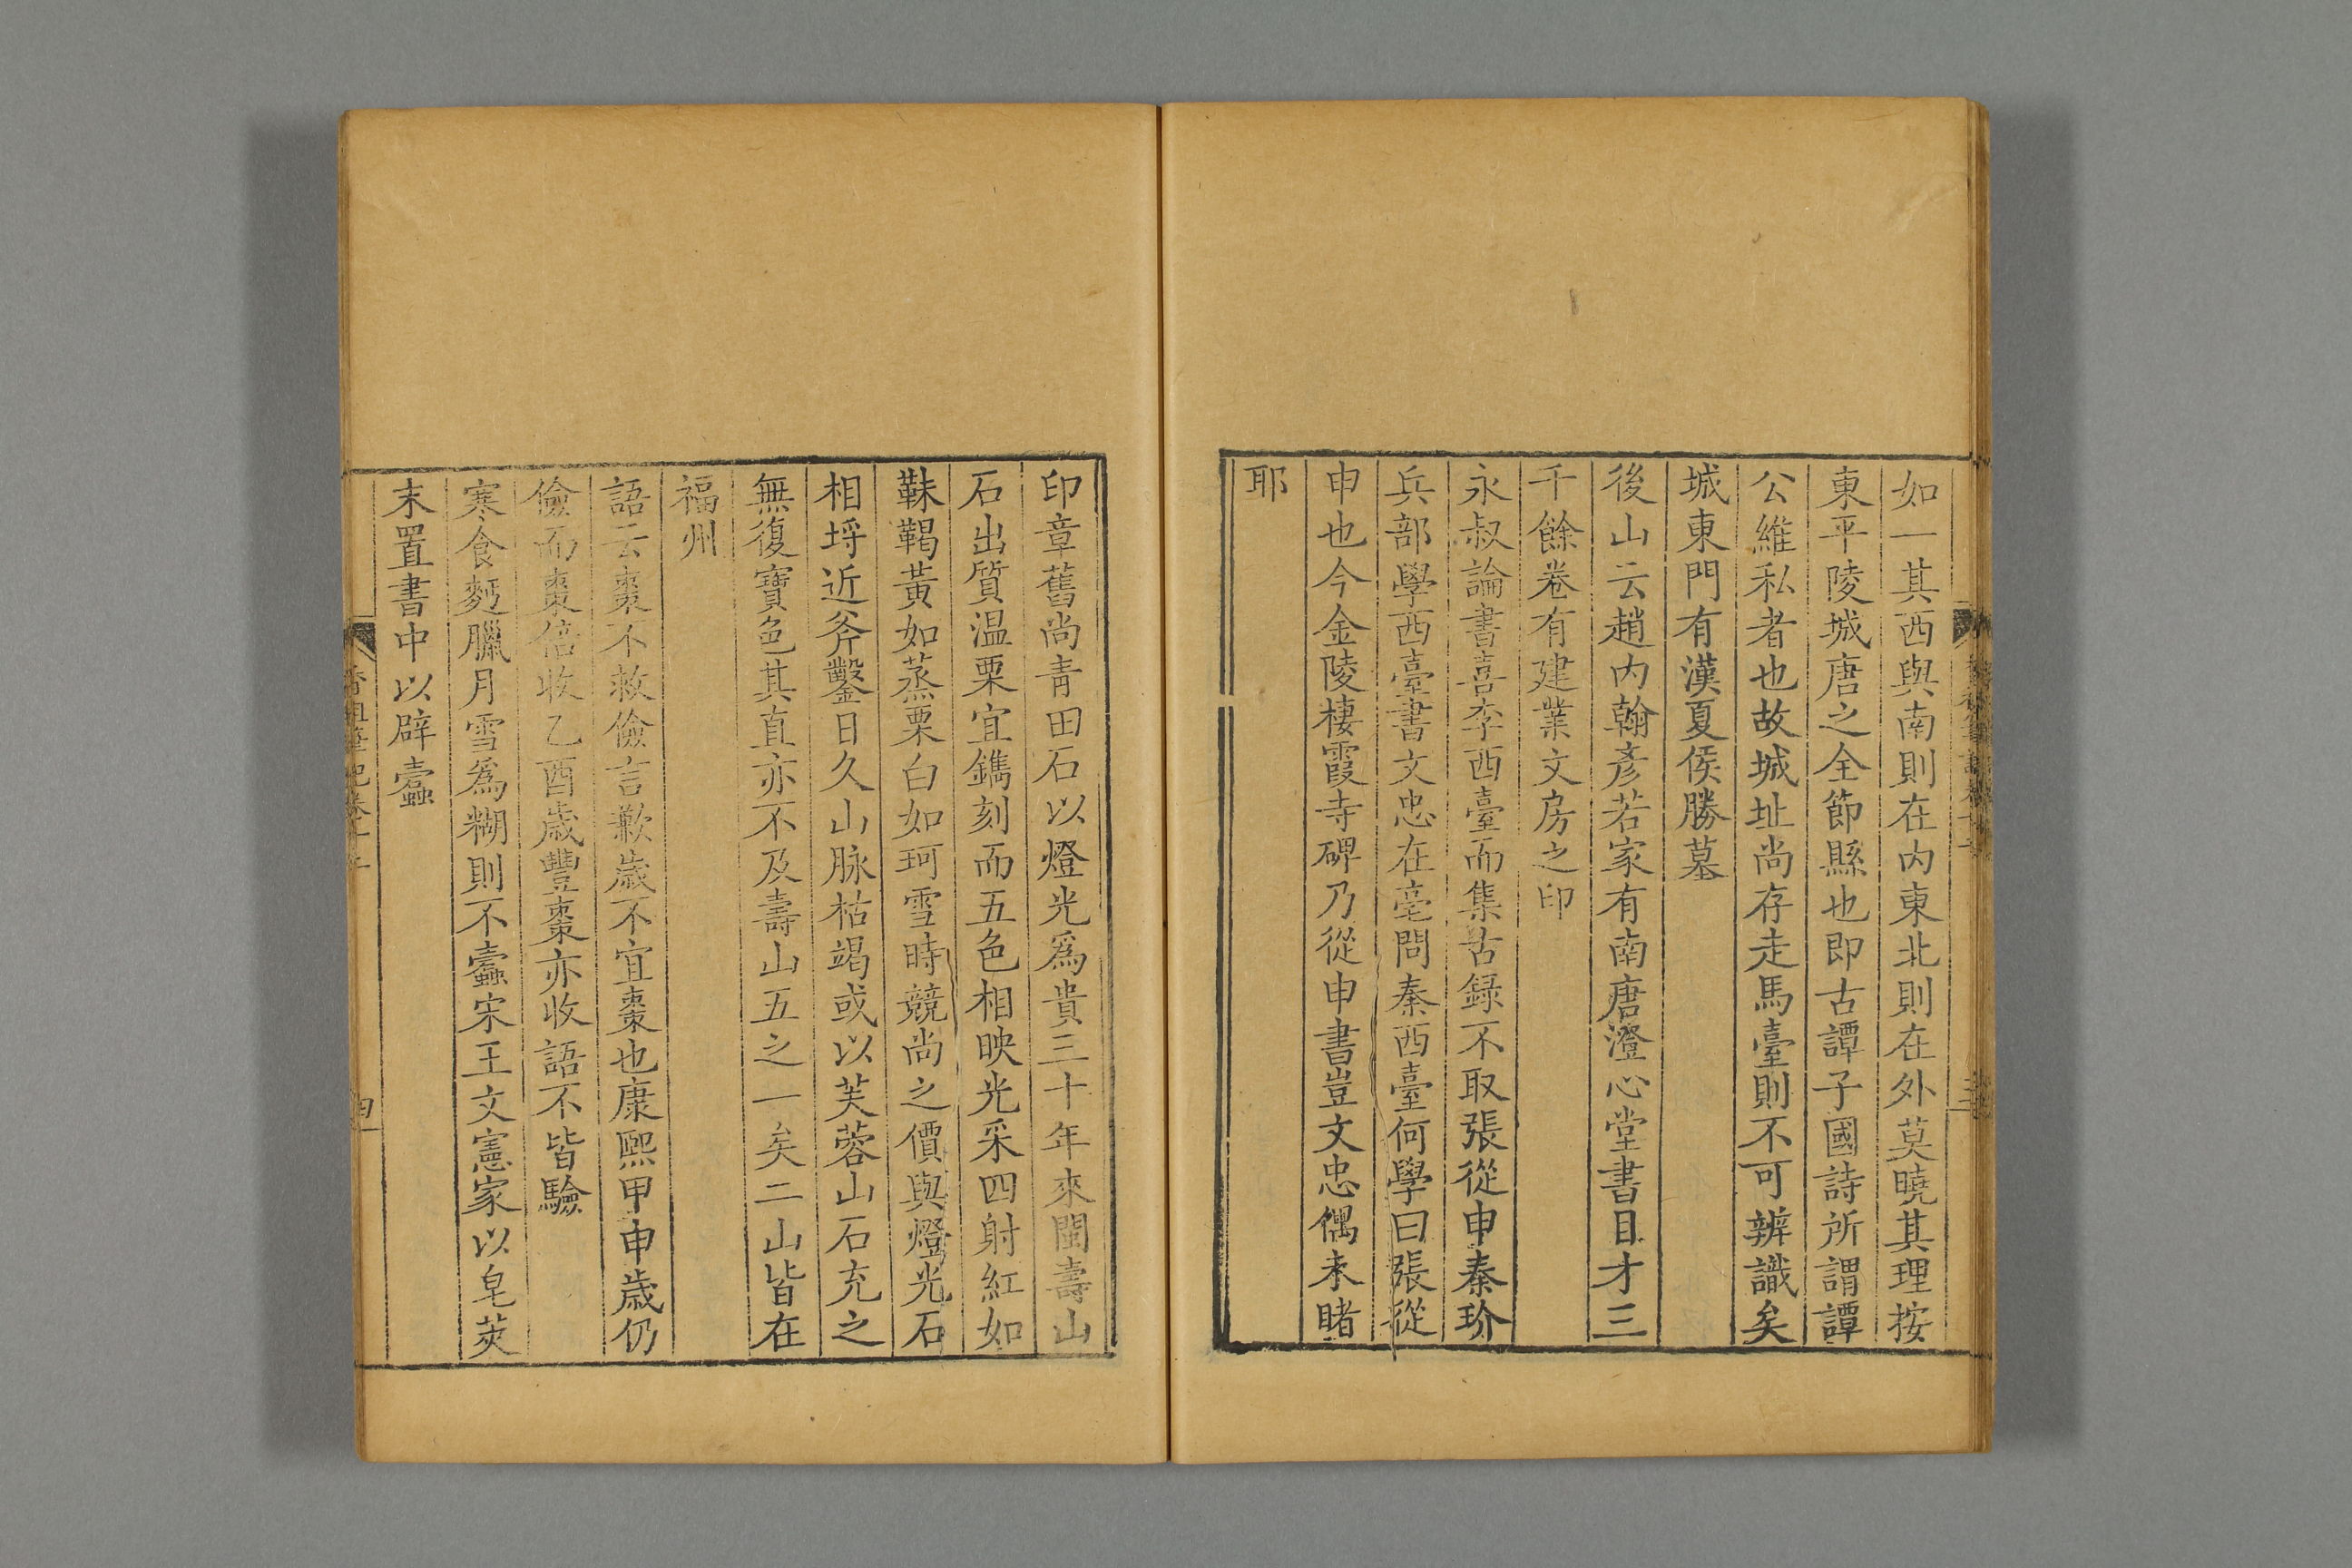 如一其西與南則在内東北則在外莫曉其理按
東平陵城唐之全節縣也即古譚子國詩所謂譚
公維私者也故城址尚存走馬臺則不可辨識矣
城東門有漢夏侯勝墓
後山云趙内翰彥若家有南唐澄心堂書目才三
千餘卷有建業文房之印
永叔論書喜李西臺而集古録不取張從申秦玠
兵部學西臺書文忠在亳問秦西臺何學曰張從
申也今金陵棲霞寺碑乃從申書豈文忠偶未睹
耶
印章舊尚青田石以燈光爲貴三十年來閩壽山
石出質温栗宜鐫刻而五色相映光采四射紅如
靺鞨黃如蒸栗白如珂雪時競尚之價與燈光石
相埒近斧鑿日久山脉枯竭或以芙蓉山石充之
無復寶色其直亦不及壽山五之一矣二山皆在
福州
語云棗不救儉言歉歲不宜棗也康熙甲申歲仍
儉而棗倍收乙酉歲豐棗亦收語不皆驗
寒食麪臘月雪爲糊則不蠹宋王文憲家以皂莢
末置書中以辟蠹
香祖筆記卷十二